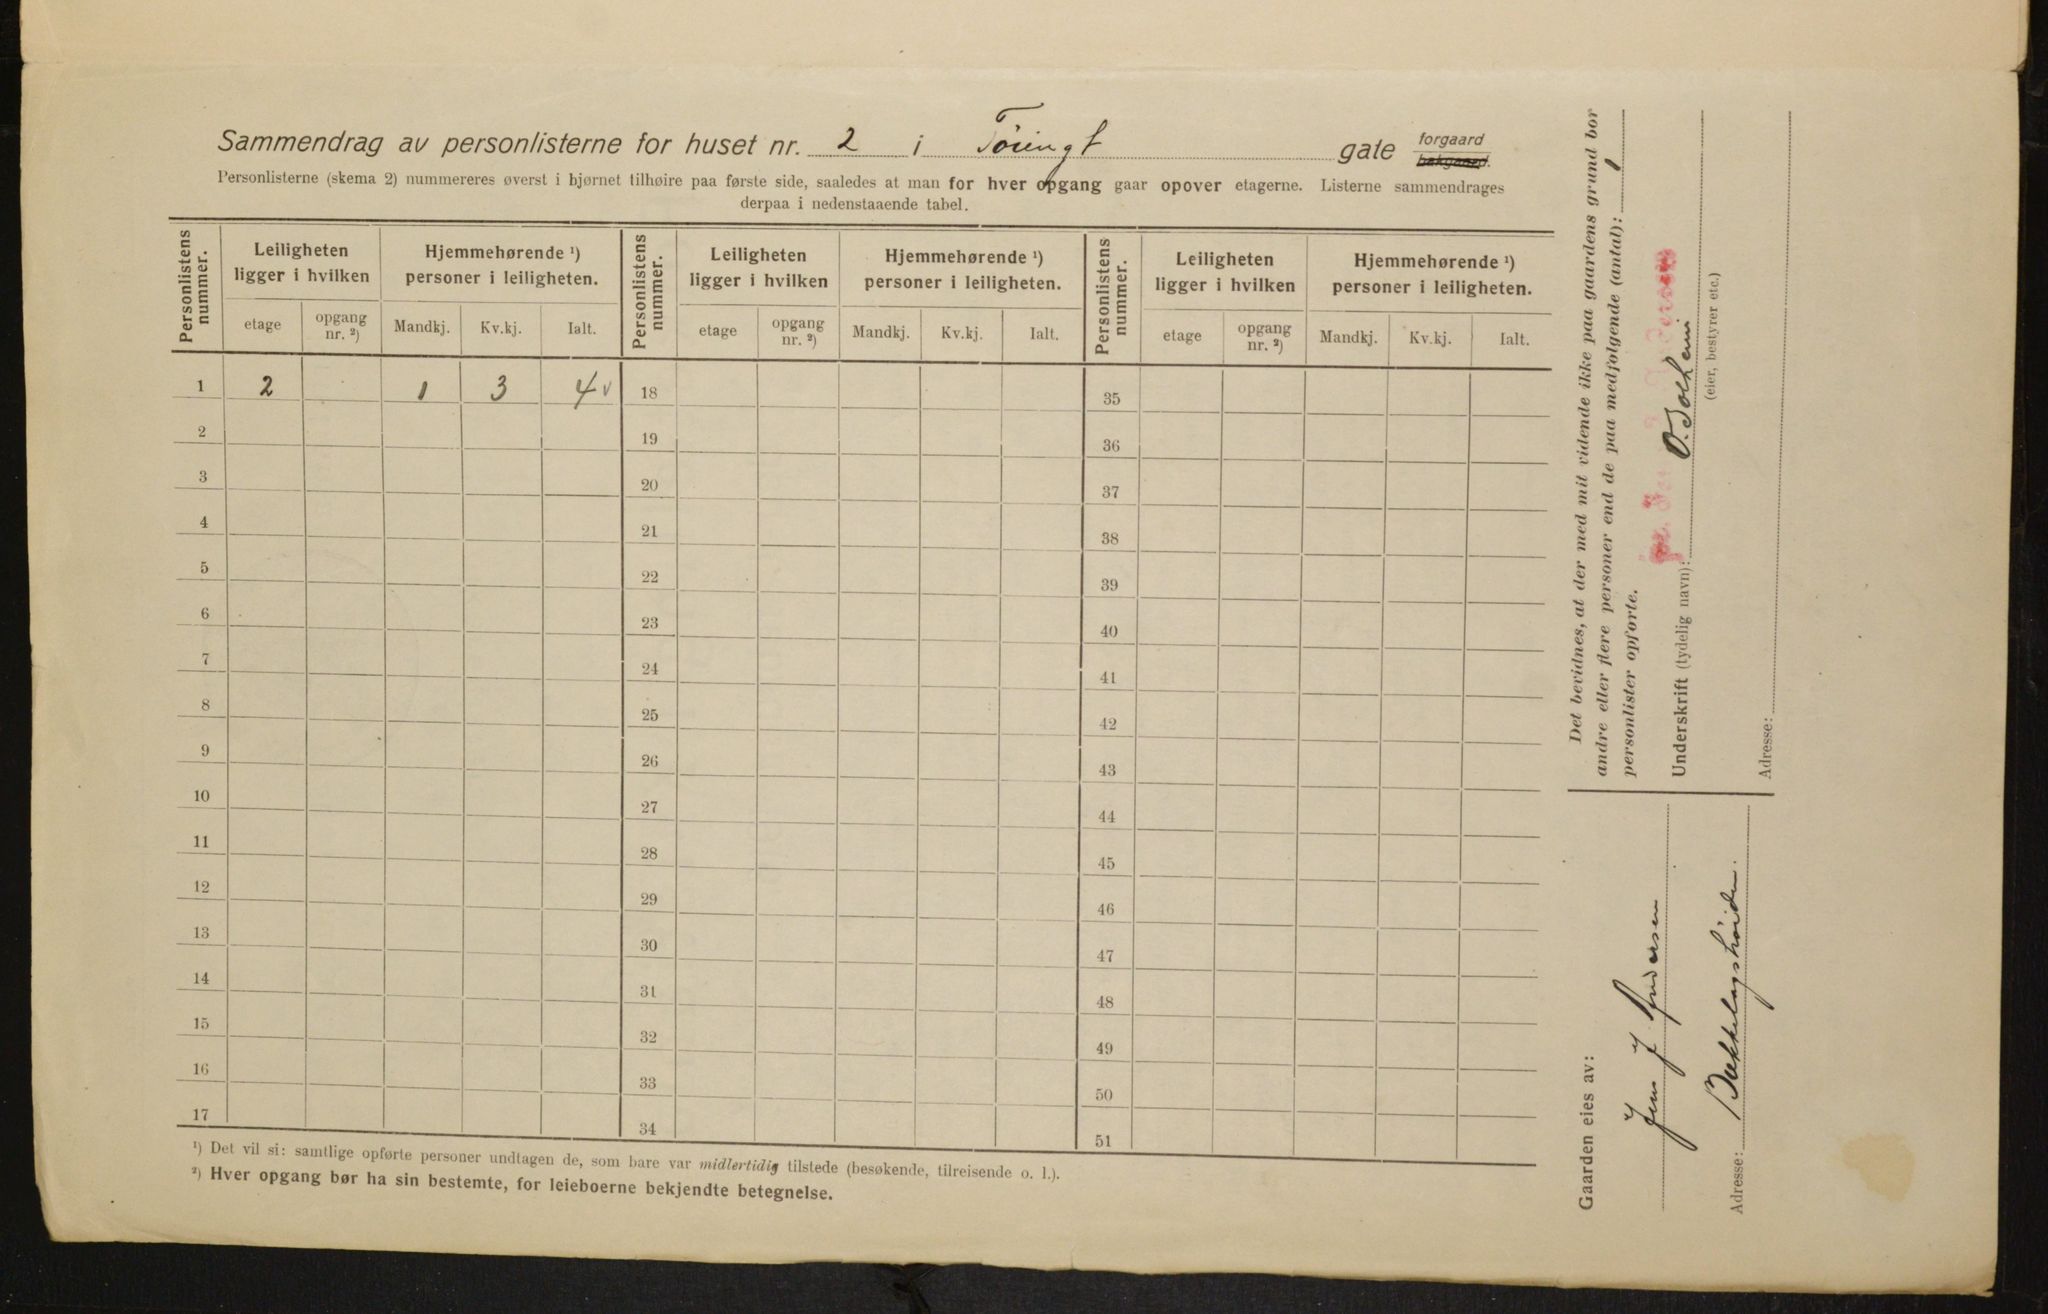 Sammendrag av personlisterne for huset nr. 2 i Tøiengt gate forgaard bakgaard.
Personlisterne (skema 2) nummereres øverst i hjørnet tilhøire paa første side, saaledes at man for hver opgang gaar opover etagerne. Listerne sammendrages
derpaa i nedenstaaende tabel.
Personlistens nummer. Leiligheten ligger i hvilken Hjemmehørende ¹) personer i leiligheten. Personlistens nummer. Leiligheten ligger i hvilken Hjemmehørende ¹) personer i leiligheten. Personlistens nummer. Leiligheten ligger i hvilken Hjemmehørende ¹) personer i leiligheten.
etage opgang nr. ²) Mandkj. Kv.kj. Ialt. etage opgang nr. ²) Mandkj. Kv.kj. Ialt. etage opgang nr. ²) Mandkj. Kv.kj. Ialt.
1 2 1 3 4 v 18 35
2 19 36
3 20 37
4 21 38
5 22 39
6 23 40
7 24 41
8 25 42
9 26 43
10 27 44
11 28 45
12 29 46
13 30 47
14 31 48
15 32 49
16 33 50
17 34 51
¹) Det vil si: samtlige opførte personer undtagen de, som bare var midlertidig tilstede (besøkende, tilreisende o. l.).
²) Hver opgang bør ha sin bestemte, for leieboerne bekjendte betegnelse.
Det bevidnes, at der med mit vidende ikke paa gaardens grund bor
andre eller flere personer end de paa medfølgende (antal): 1
personlister opførte.
Underskrift (tydelig navn): O. Solheim
(eier, bestyrer etc.)
Adresse:
Gaarden eies av:
Jens J. Andersen
Adresse: Bækkelagshøiden.